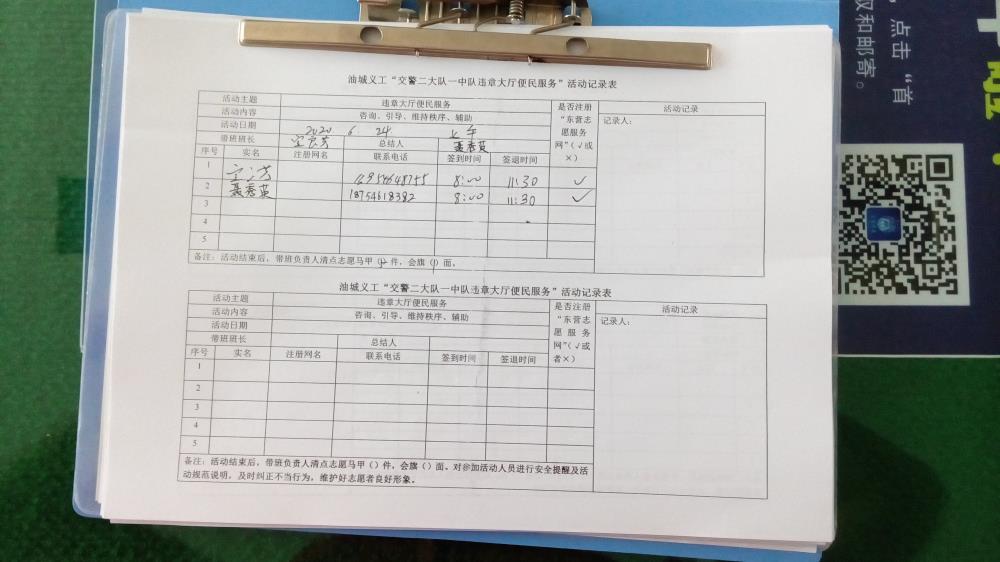 油城义工“交警二大队一中队违章大厅便民服务”活动记录表
活动主题 违章大厅便民服务 是否注册“东营志愿服务网”（√或×） 活动记录
活动内容 咨询、引导、维持秩序、辅助 记录人：
活动日期 2020 6 24 上午
带班班长 总结人 聂秀英
序号 实名 注册网名 联系电话 签到时间 签退时间
1 8:00 11:30 ✓
2 聂秀英 18754618382 8:00 11:30 ✓
3
4
5
备注：活动结束后，带班负责人清点志愿马甲（）件，会旗（1）面。
油城义工“交警二大队一中队违章大厅便民服务”活动记录表
活动主题 违章大厅便民服务 是否注册“东营志愿服务网”（√或者×） 活动记录
活动内容 咨询、引导、维持秩序、辅助 记录人：
活动日期
带班班长 总结人
序号 实名 注册网名 联系电话 签到时间 签退时间
1
2
3
4
5
备注：活动结束后，带班负责人清点志愿马甲（）件，会旗（）面。对参加活动人员进行安全提醒及活
动规范说明，及时纠正不当行为，维护好志愿者良好形象。
，点击“首
权和邮寄。